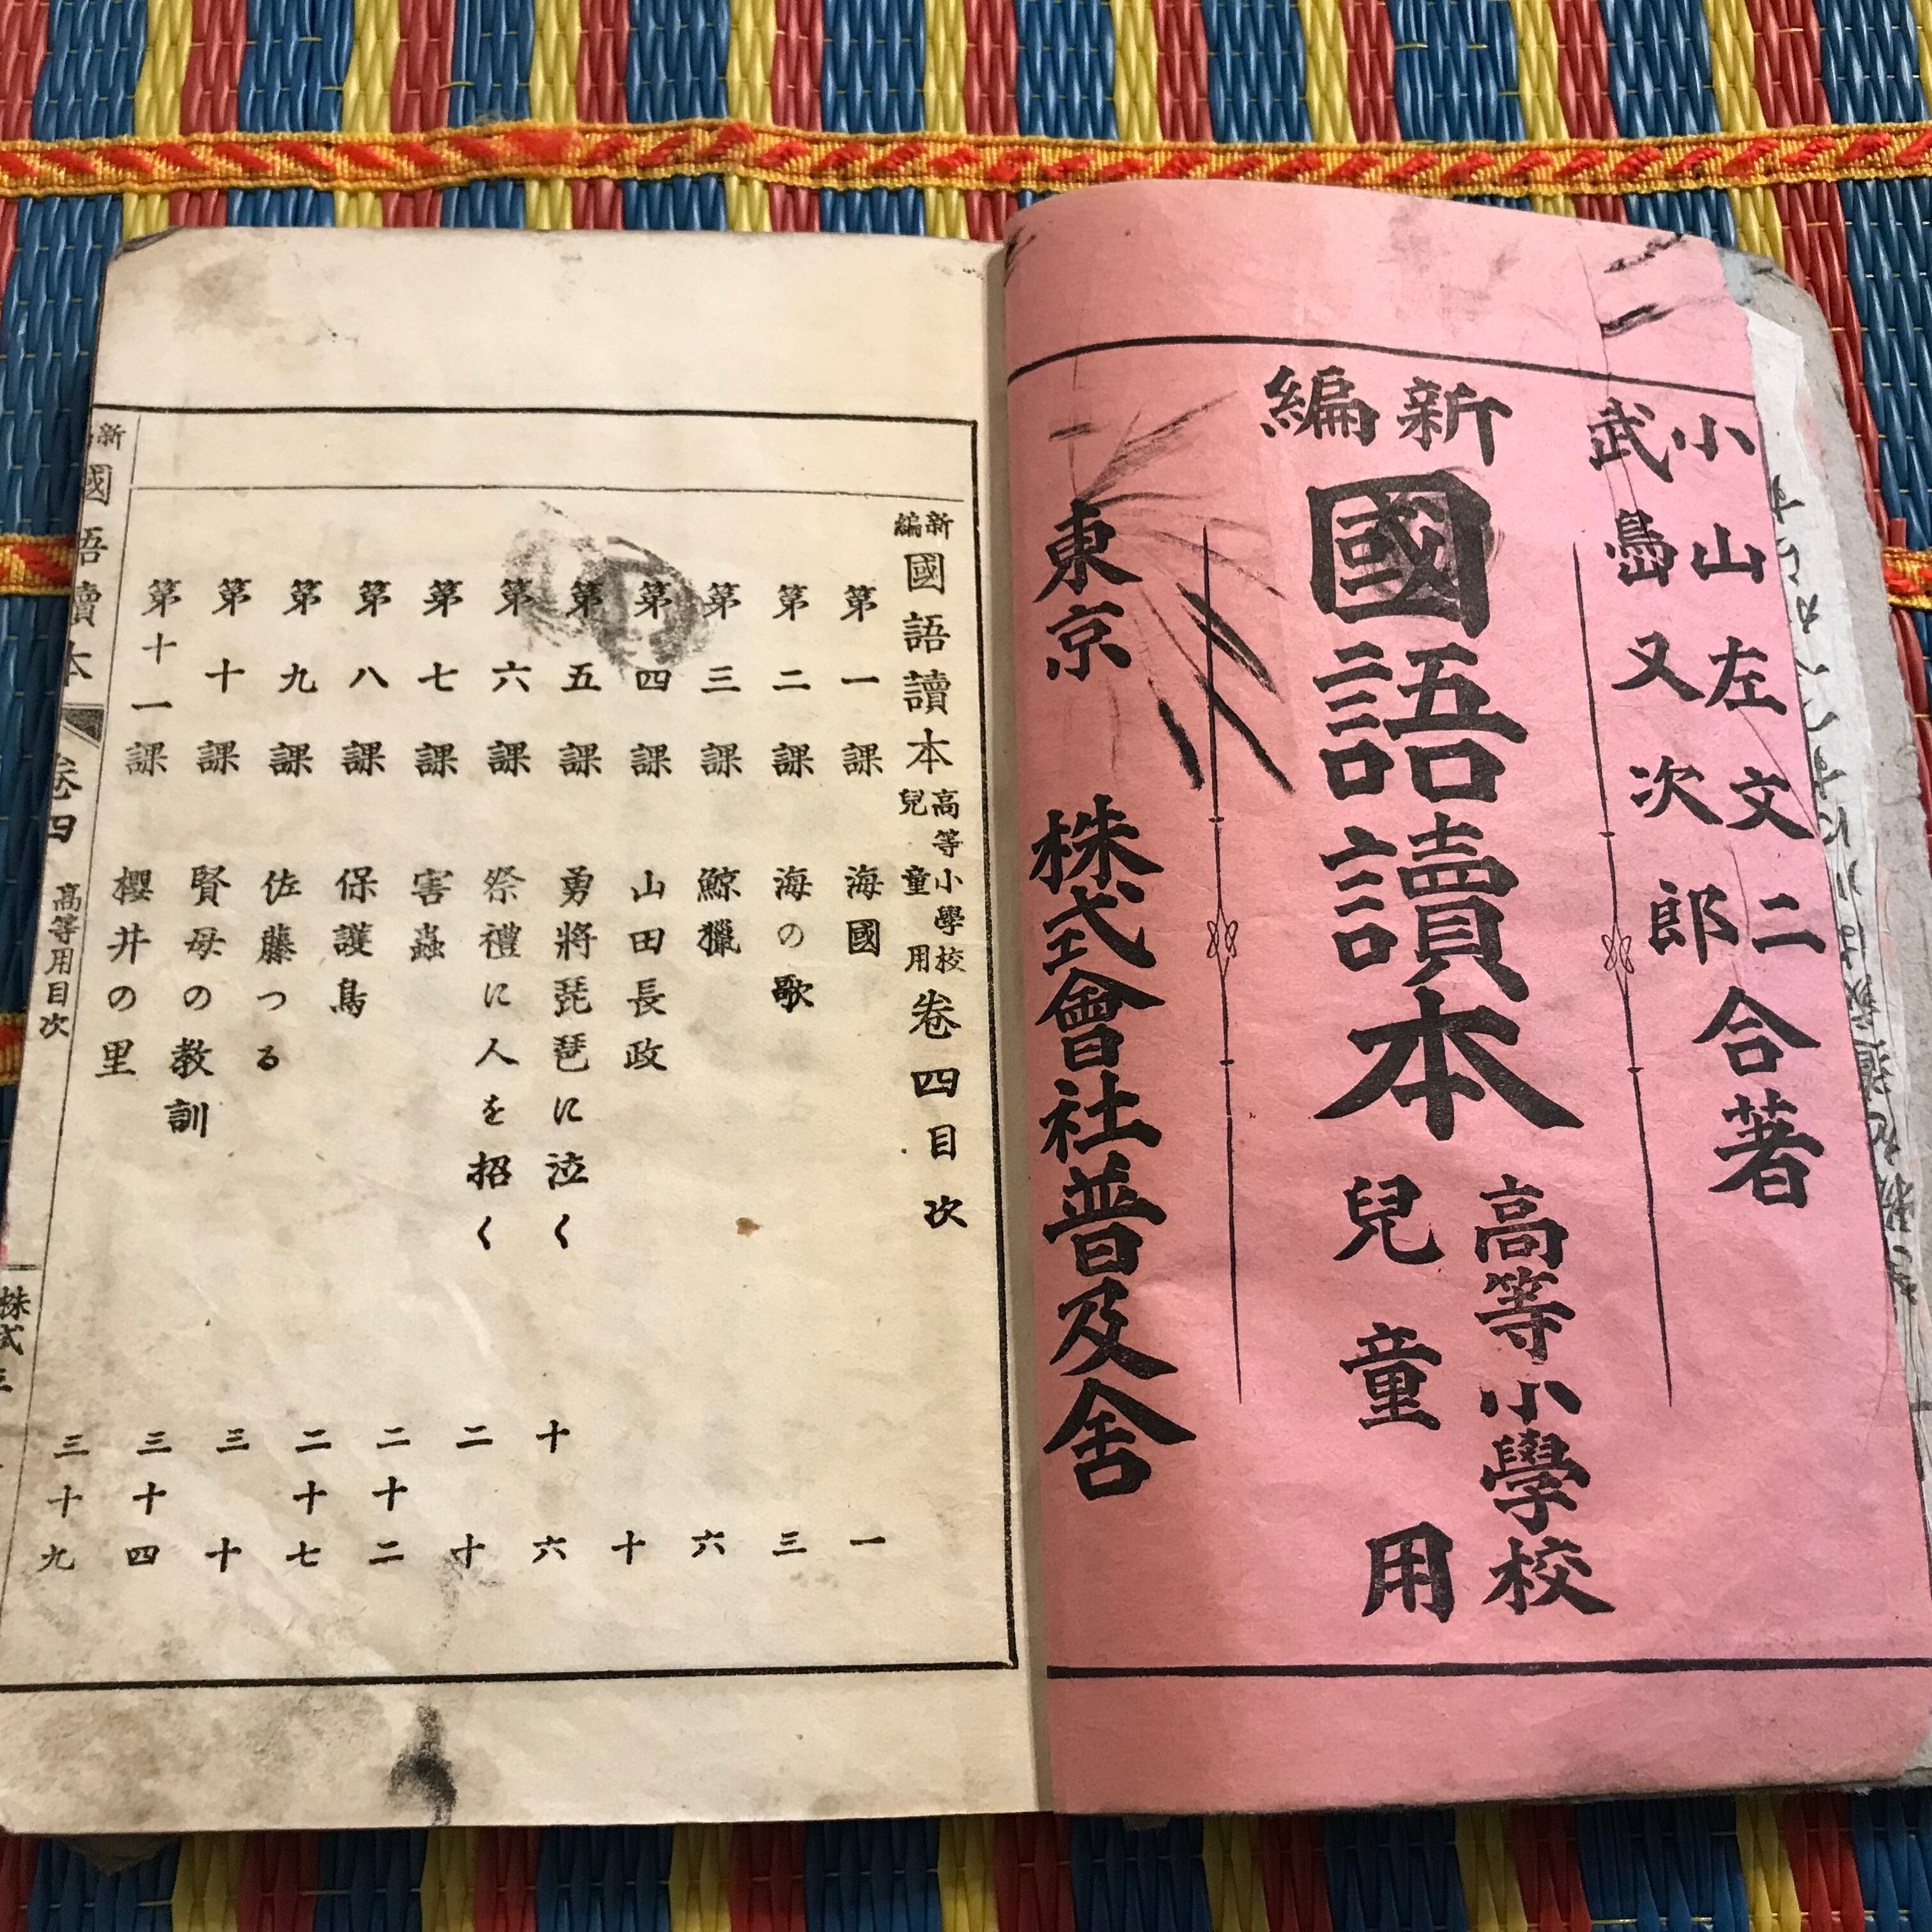 小山左文二
武島又次郎
合著
新編
國語讀本
高等小學校
兒童用
東京 株式會社普及舍
新編 國語讀本 高等小學校兒童用 卷四目次
第一課 海國 一
第二課 海の歌 三
第三課 鯨獵 六
第四課 山田長政 十
第五課 勇將琵琶に泣く 十六
第六課 祭禮に人を招く 二十
第七課 害蟲 二十二
第八課 保護鳥 二十七
第九課 佐藤つる 三十
第十課 賢母の教訓 三十四
第十一課 櫻井の里 三十九
新 國語讀本 卷四 高等用目次
株式